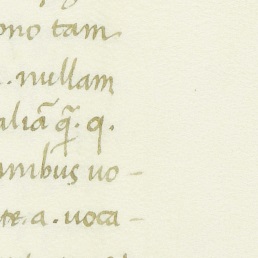 ono tam
. nullam
aliā q̄. q.
nnibus uo-
te. a. uoca-